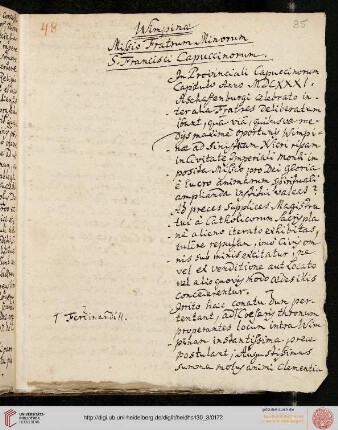 48
35
Wimpina
Missio Fratrum Minorum
S. Francisci Capuccinorum.
In Provinciali Capuccinorum
Capitulo Anno MDCXXXI.
Aschaffenburgi celebrato in-
ter alia Fratres deliberatum
ivere, qua via, quibusve me-
dijs maxime oportunis Wimpi-
nae ad sinistram Nicri ripam
in Civitate Imperiali monti im-
posita Missio pro Dei Gloria
è lucro animarum spirituali
amplianda institui valeat?
Ad preces supplices Magistra-
tui à Catholicorum sacris pla-
ne alieno iterato exhibitas,
tulere repulsam, imò civis om-
nis sub minis excitatur, ne
vel ex venditione aut locato
vel alio quovis modo aedes illis
concederentur.
Irrito hoc conatu dum per-
tentant, ad Caesaris thronum
properantes locum intra Wim-
pinam instantissima prece
postulant; Augustissimus
summa motus animi clementia
† Ferdinand II.
UNIVERSITÄTS-
BIBLIOTHEK
HEIDELBERG
http://digi.ub.uni-heidelberg.de/diglit/heidhs130_8/0172
gefördert durch die